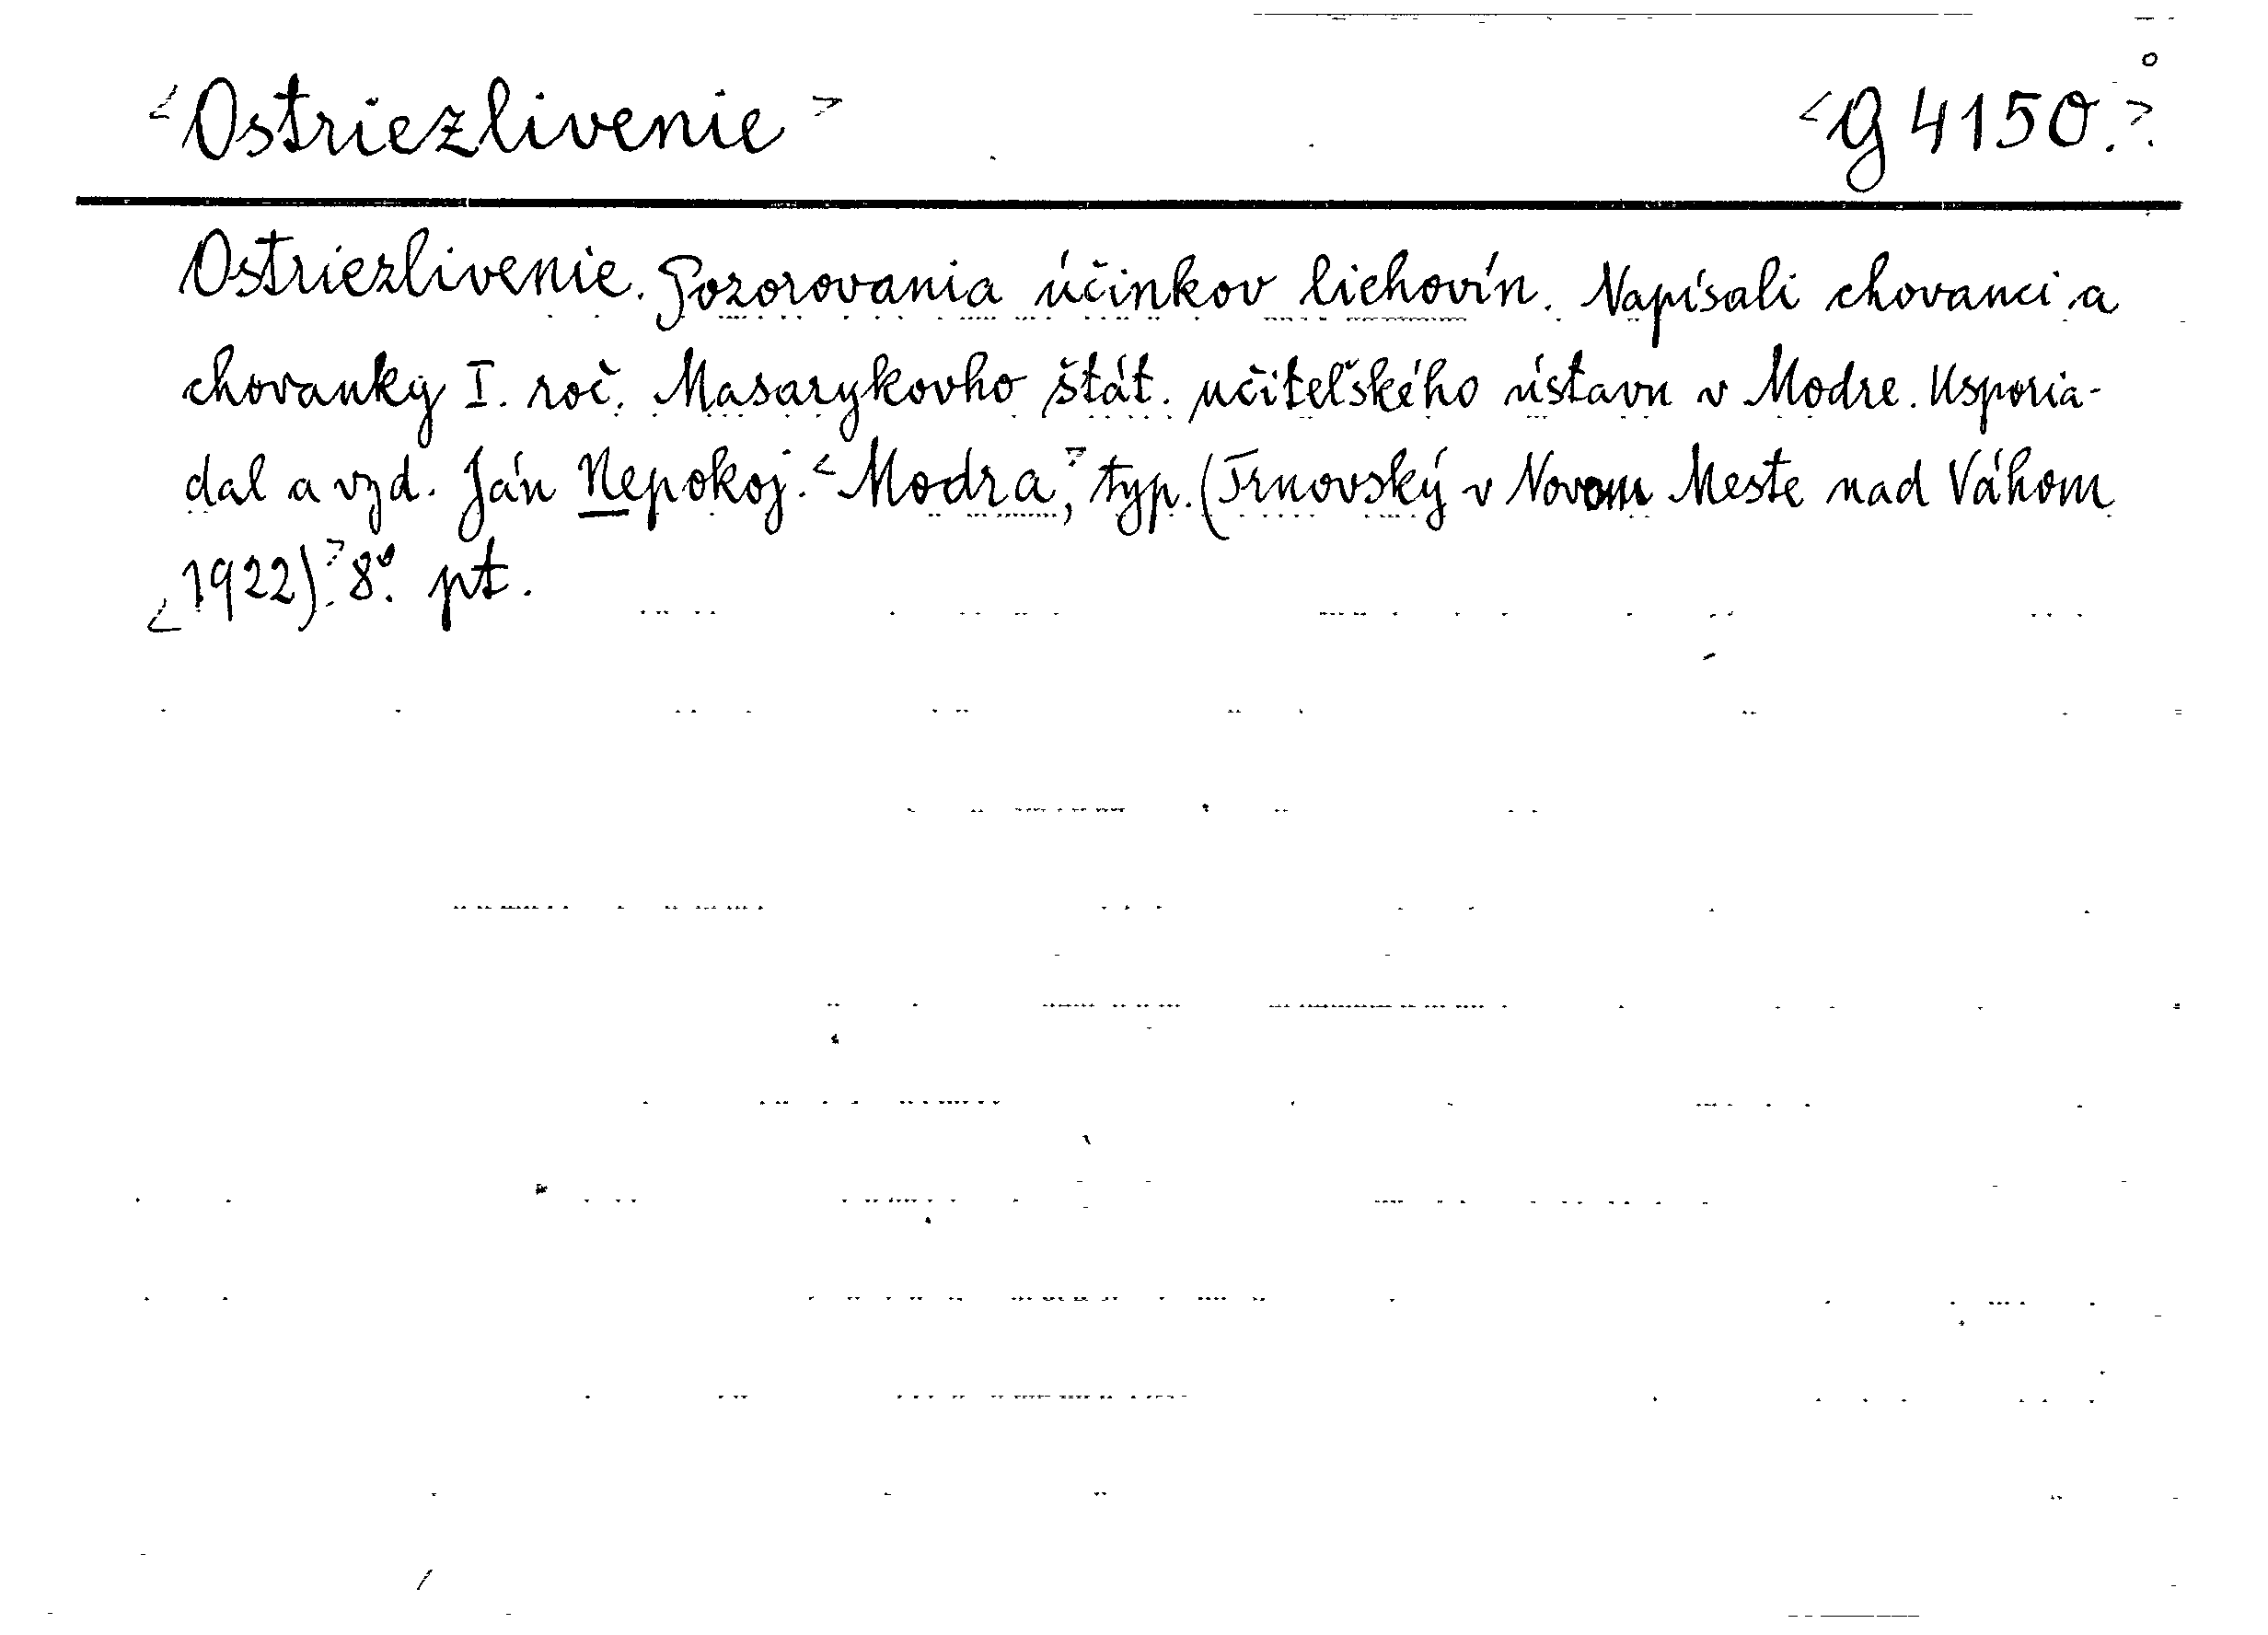 <Ostriezlivenie> <G 4150.>
Ostriezlivenie. Pozorovania účinkov liehovín. Napísali chovanci a
chovanky I. roč. Masarykovho štát. učiteľského ústavu v Modre. Usporia-
dal a vyd. Ján Nepokoj. <Modra,> typ. (Trnovský v Novom Meste nad Váhom
<1922).> 8°. pt.